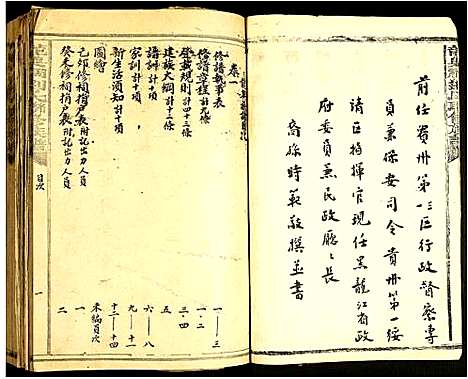 前任貴州第三區行政督察專
員兼保安司令貴州第一綏
靖區指揮官現任黑龍江省政
府委員兼民政廳廳長
裔孫時範敬撰並書
目次
卷一
修譜執事表 一—三
修譜章程計十二條 一.二
登載規則計四十三條 三.四
建族大綱計十二條 五
譜訓計十項 六—八
家訓計十項 九—十一
新生活須知計十項 十二—十四
圖繪 未編頁次
己卯修祠捐戶表附記出力人員 一
癸未修祠捐戶表附記出力人員 二
目次
一